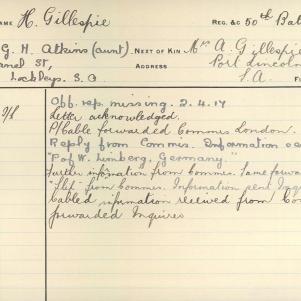 NAME H. Gillespie REG. &C 50th Bat
G. H. Atkins (aunt). NEXT OF KIN Mrs A. Gillespie
St, ADDRESS Port Lincoln
Lockleys. S.A. S.A.
Off. rep. missing. 2.4.17
Letter acknowledged.
P/Cable forwarded Commrs London.
Reply from Commrs. Information
"P of W. Limberg, Germany."
Further information from Commrs. Same forwar
"Slip" from Commrs. Information sent Inqu
Cabled information received from Co
forwarded Inquires